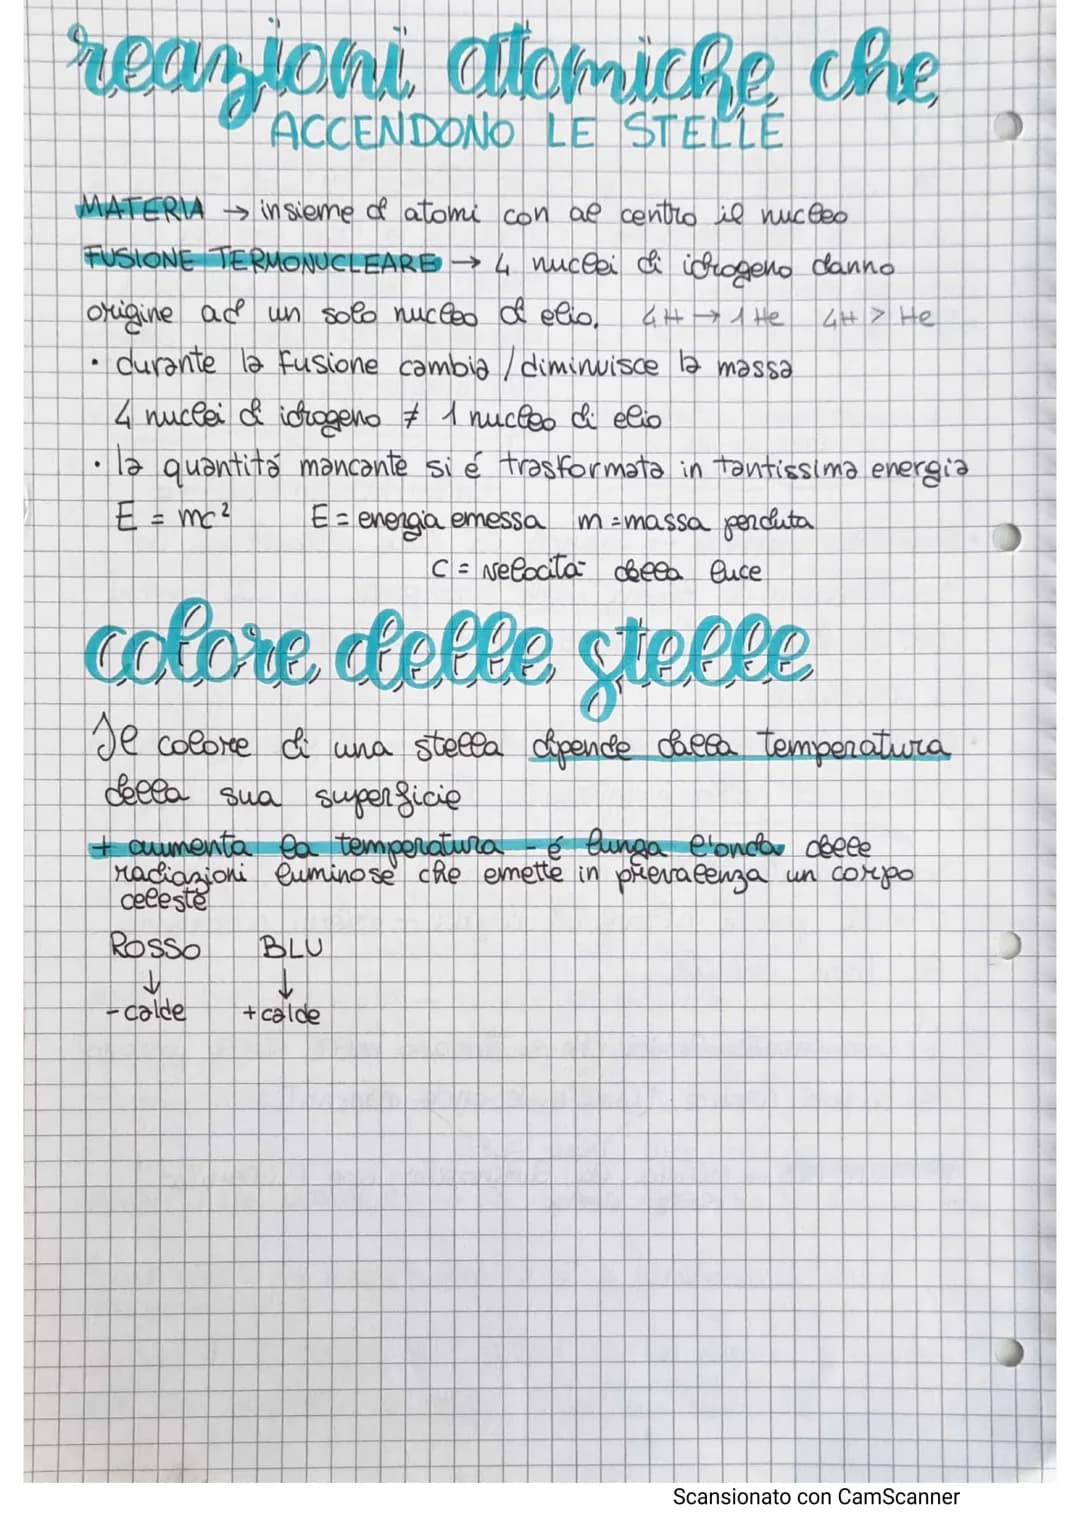 reazioni atomiche che
ACCENDONO LE STELLE
MATERIA → insieme di atomi con al centro il nucleo
FUSIONE TERMONUCLEARE → 4 nuclei di idrogeno danno
origine ad un solo nucleo di elio. 4H → 1 He 4H > He
• durante la fusione cambia / diminuisce la massa
4 nuclei di idrogeno ≠ 1 nucleo di elio
• la quantitá mancante si é trasformata in tantissima energia
E = mc² E = energia emessa m = massa perduta
C = velocitá della luce
colore delle stelle
Il colore di una stella dipende dalla temperatura
della sua superficie
+ aumenta la temperatura - é lunga l'onda delle
radiazioni luminose che emette in prevalenza un corpo
celeste
ROSSO BLU
↓ ↓
- calde + calde
Scansionato con CamScanner